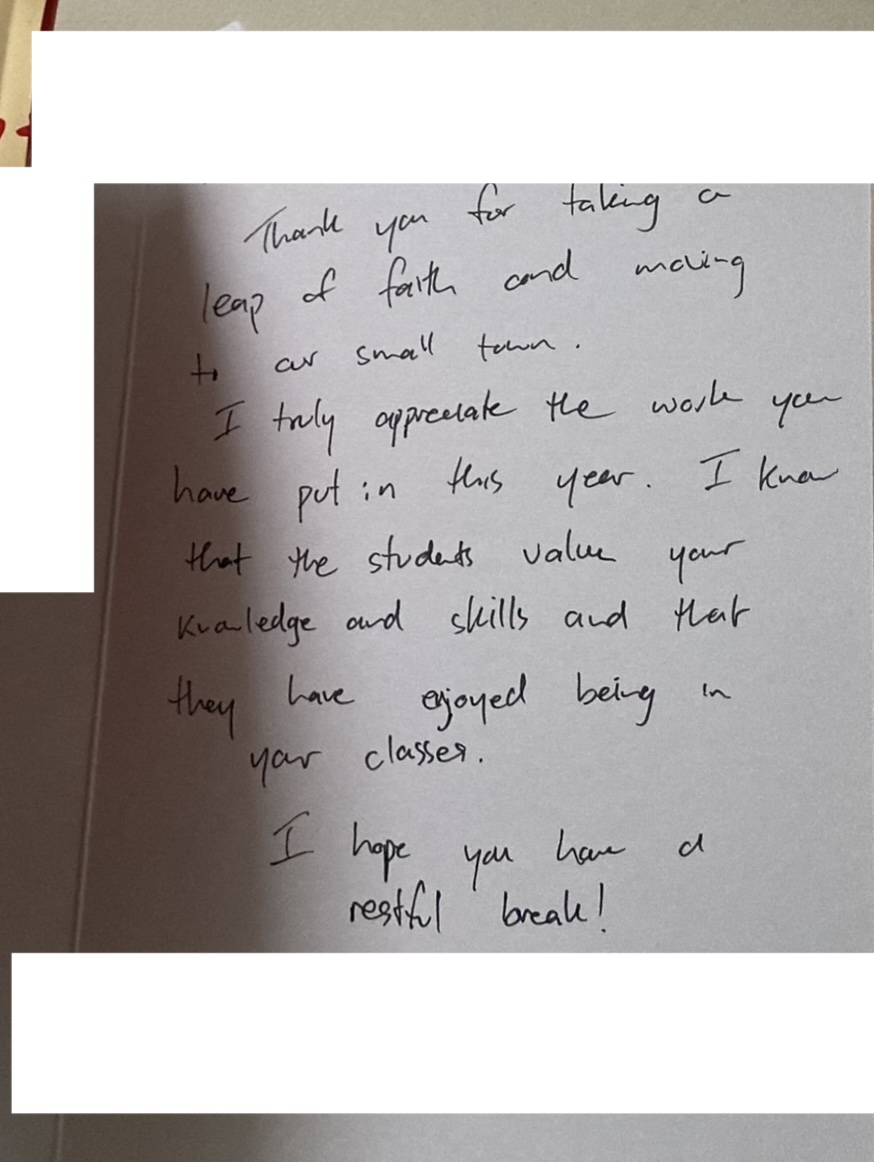 Thank you for taking a
leap of faith and moving
to our small town.
I truly appreciate the work you
have put in this year. I know
that the students value your
knowledge and skills and that
they have enjoyed being in
your classes.
I hope you have a
restful break!